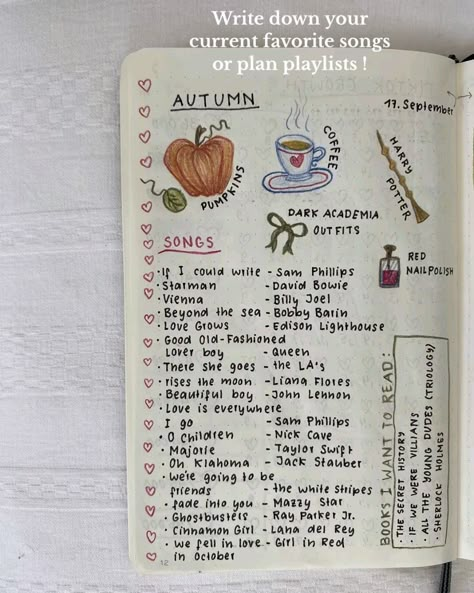 Write down your
current favorite songs
or plan playlists !
AUTUMN
17. September
PUMPKINS
COFFEE
HARRY
POTTER
DARK ACADEMIA
OUTFITS
RED
NAILPOLISH
SONGS
· If I could write - Sam Phillips
· Starman - David Bowie
· Vienna - Billy Joel
· Beyond the sea - Bobby Barin
· Love Grows - Edison Lighthouse
· Good Old-Fashioned
Lover boy - Queen
· There she goes - the LA's
· rises the moon - Liana Flores
· Beautiful boy - John Lennon
· Love is everywhere
I go - Sam Phillips
· O Children - Nick Cave
· Majorie - Taylor Swift
· Oh Klahoma - Jack Stauber
· We're going to be
friends - the white stripes
· fade into you - Mazzy Star
· Ghostbusters - Ray Parker Jr.
· Cinnamon Girl - Lana del Rey
· We fell in love - Girl in Red
in October
BOOKS I WANT TO READ:
· THE SECRET HISTORY
· IF WE WERE VILLIANS
· ALL THE YOUNG DUDES (TRIOLOGY)
· SHERLOCK HOLMES
12